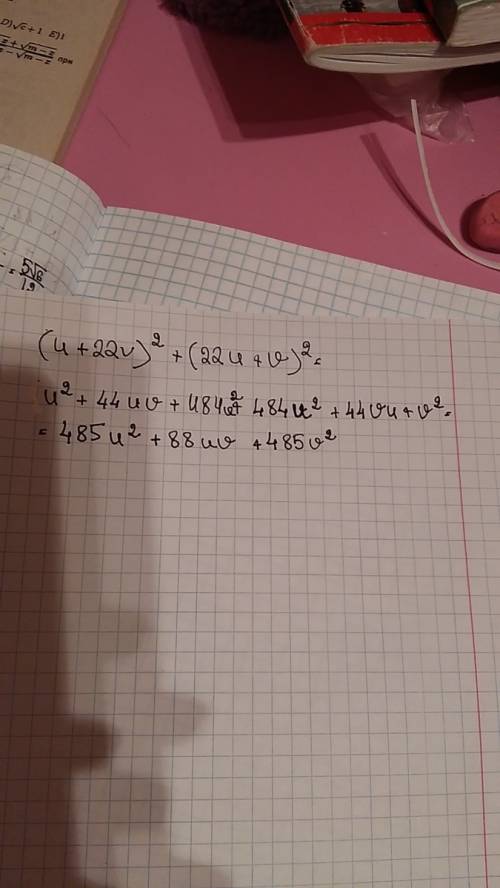 D) √c + 1 E) 1
z + √m − z
− √m − z при
= 5√6/19
(u + 22v)² + (22u + v)² =
u² + 44uv + 484v² + 484u² + 44vu + v² =
= 485u² + 88uv + 485v²